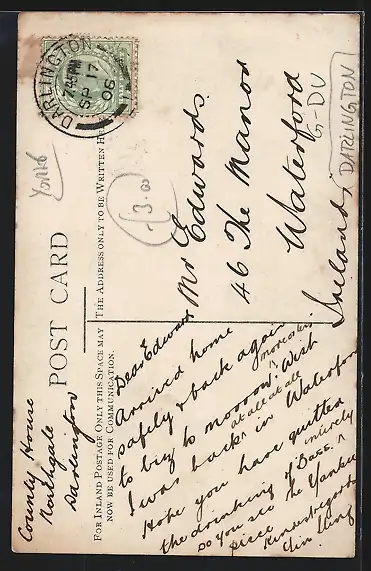 DARLINGTON
7.45 PM
SP 17
06
Yorks
13.00
DARLINGTON
G-DU
POST CARD
FOR INLAND POSTAGE ONLY THIS SPACE MAY
NOW BE USED FOR COMMUNICATION.
THE ADDRESS ONLY TO BE WRITTEN HERE
Mr Edwards
46 The Manor
Waterford
Ireland
County House
Northgate
Darlington
Dear Edward
Arrived home
safely & back again
to biz to morrow. Wish
I was back at all at all in Waterford
Hope you have quitted
the drinking of Bass. entirely
Do you see the Yankee
piece
Kindest regards